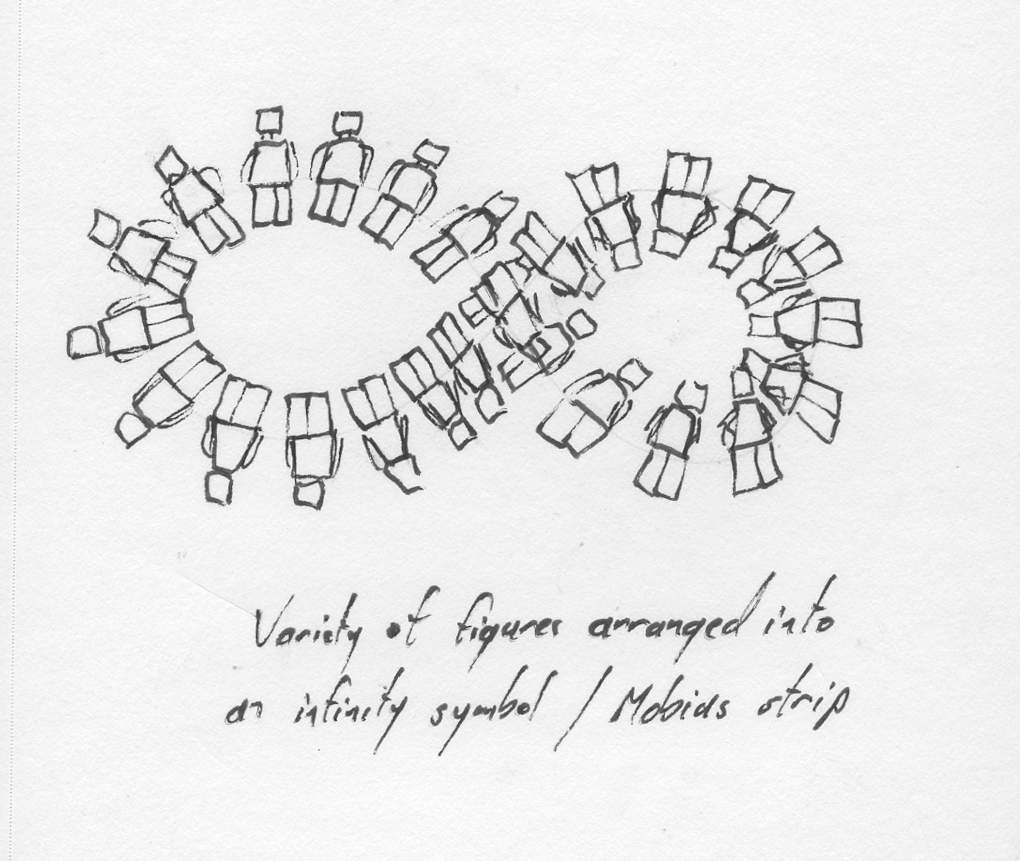 Variety of figures arranged into
an infinity symbol / Mobius strip